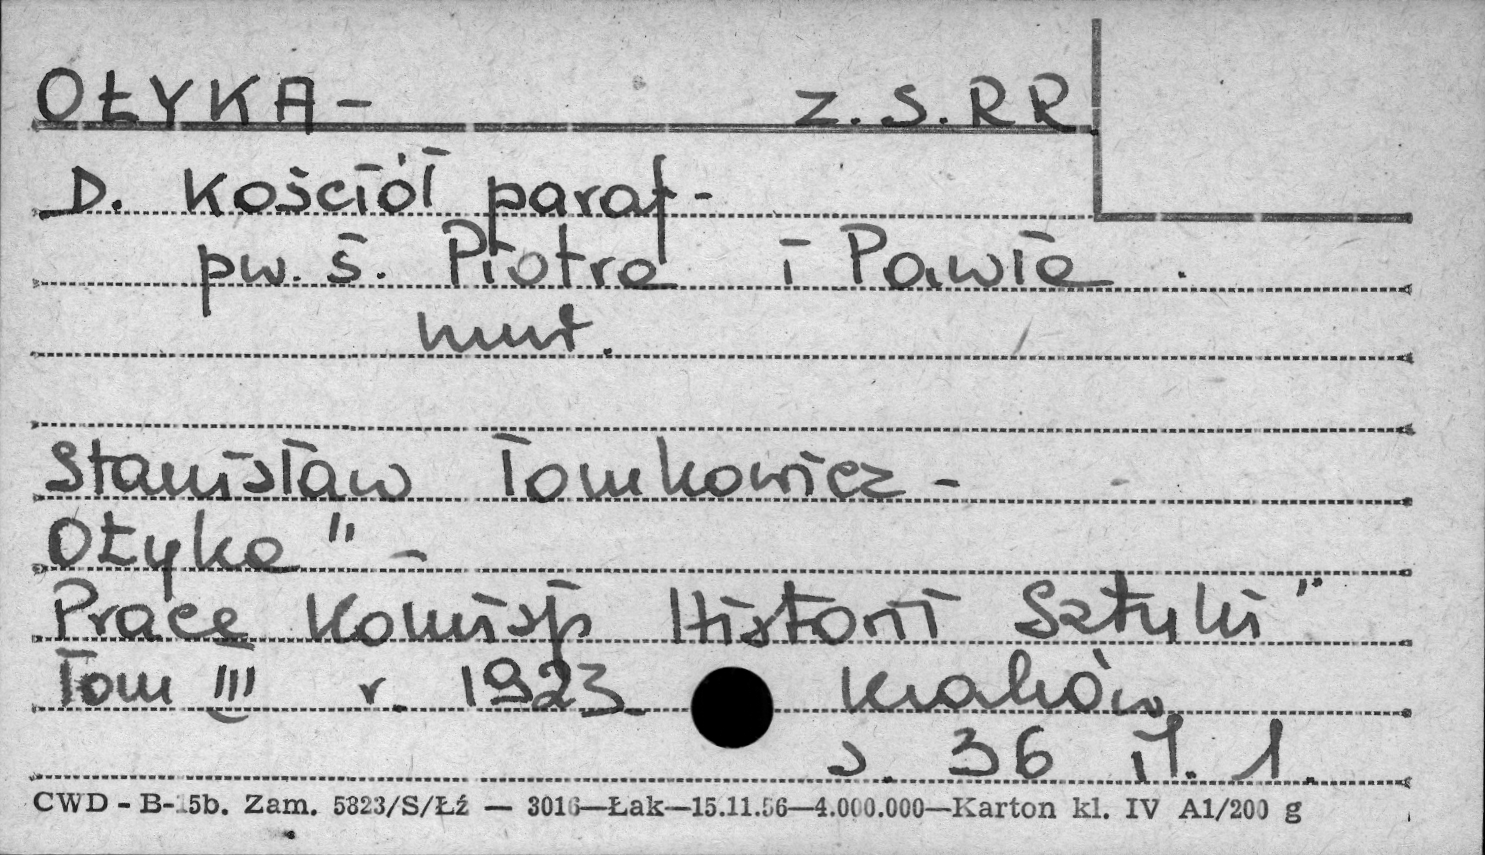 OŁYKA - Z.S.RR
D. Kościół paraf-
pw. ś. Piotra i Pawła.
mur.
Stanisław Tomkowicz -
Ołyka" -
Prace Komisji Historii Sztuki"
Tom III r. 1923 Kraków
s. 36 il. 1.
CWD - B-15b. Zam. 5823/S/Łź — 3016—Łak—15.11.56—4.000.000—Karton kl. IV A1/200 g